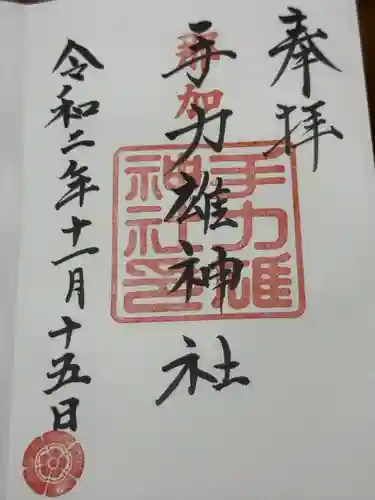 奉拝
手力雄神社
那加
手力雄
神社印
令和二年十一月十五日